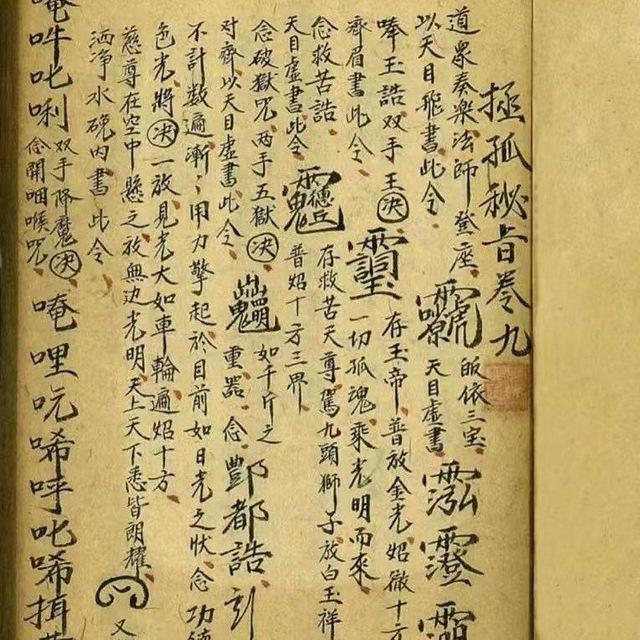 拯孤秘旨卷九
道衆奏樂法師登座 皈依三宝
以天目飛書此令 天目虛書
唪玉誥双手王決 存玉帝普放金光炤徹十方
齊眉書此令 一切孤魂乘光明而來
念救苦誥 存救苦天尊駕九頭獅子放白玉祥
天目虛書此令 普炤十方三界
念破獄咒两手五獄決 如千斤之
对齊以天目虛書此令 重器念酆都誥
不計数遍漸漸用力擎起於目前如日光之状念功德
色光將決一放見光大如車輪遍炤十方
慈尊在空中懸之放無边光明天上天下悉皆朗耀
洒净水碗内書此令 又
唵吽叱唎 双手降魔決 唵哩吭唏呼叱唏揖
念開咽喉咒